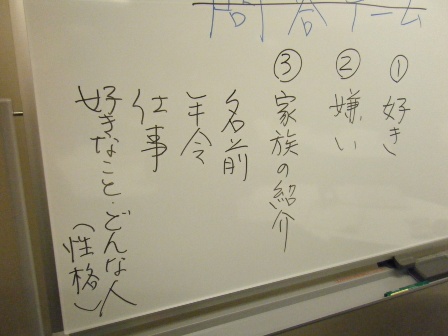 問答ゲーム
① 好き
② 嫌い
③ 家族の紹介
名前
年令
仕事
好きなこと・どんな人
(性格)